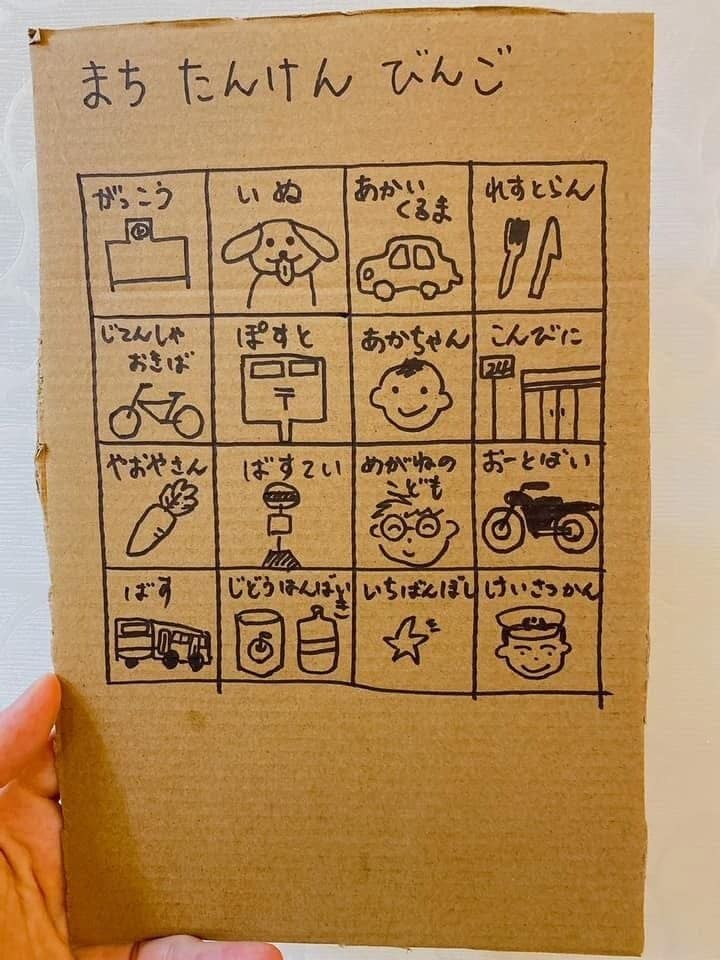 まち たんけん びんご
がっこう
いぬ
あかい
くるま
れすとらん
じてんしゃ
おきば
ぽすと
〒
あかちゃん
こんびに
24
やおやさん
ばすてい
めがねの
こども
おーとばい
ばす
じどうはんばい
き
いちばんぼし
けいさつかん